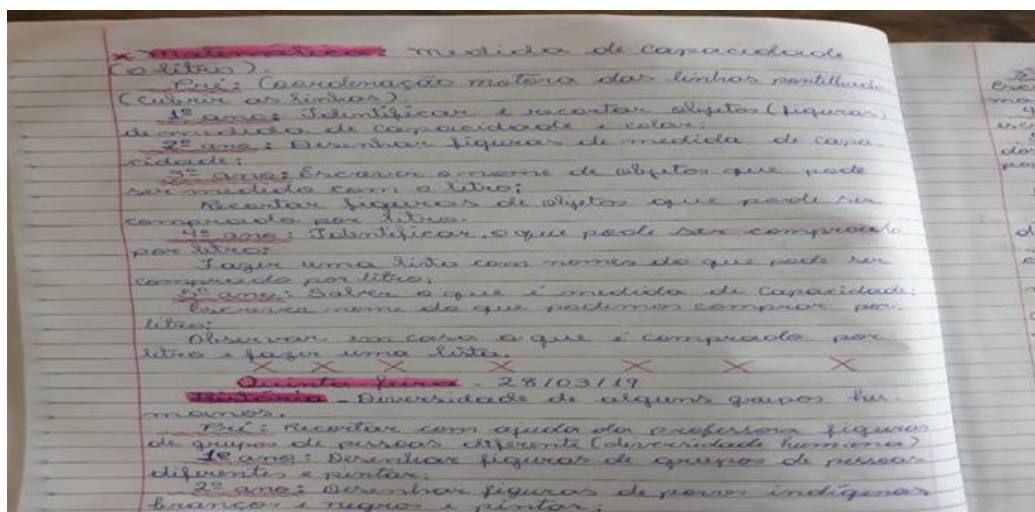 x Matemática: medida de capacidade
(o litro).
Pré: Coordenação motora das linhas pontilhada.
(cubrir as linhas)
1º ano: Identificar e recortar objetos (figuras)
de medida de capacidade e colar;
2º ano: Desenhar figuras de medida de capa-
cidade;
3º ano: Escrever o nome de objetos que pode
ser medido com o litro;
Recortar figuras de objetos que pode ser
comprado por litro.
4º ano: Identificar o que pode ser comprado
por litro;
Fazer uma lista com nomes do que pode ser
comprado por litro;
5º ano: Saber o que é medida de capacidade;
Escreva nome do que podemos comprar por
litro;
Observar em casa o que é comprado por
litro e fazer uma lista.
x x x x x x x
Quinta feira - 28/03/19
História - Diversidade de alguns grupos hu-
manos.
Pré: Recortar com ajuda da professora figuras
de grupos de pessoas diferente (diversidade humana)
1º ano: Desenhar figuras de grupos de pessoas
diferentes e pintar;
2º ano: Desenhar figuras de povos indígenas
brancos e negros e pintar;